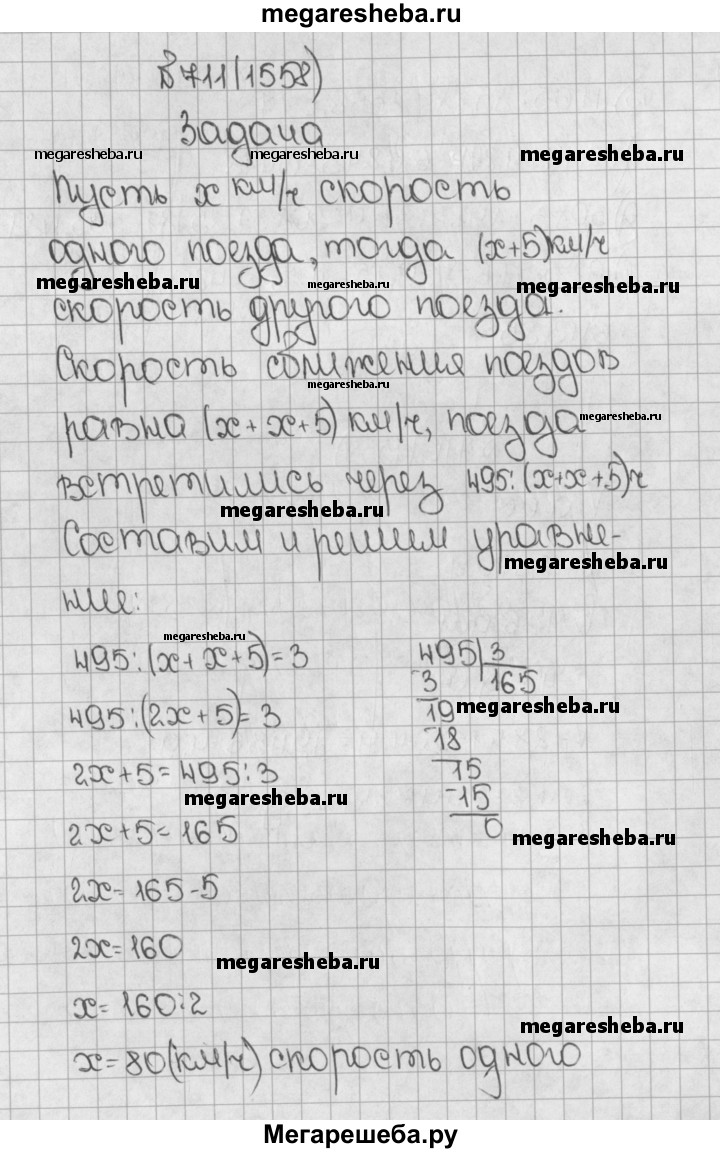 megaresheba.ru
№ 711(1558)
Задача
megaresheba.ru megaresheba.ru megaresheba.ru
Пусть x км/ч скорость
одного поезда, тогда (x+5)км/ч
megaresheba.ru megaresheba.ru megaresheba.ru
скорость другого поезда.
Скорость сближения поездов
megaresheba.ru
равна (x+x+5) км/ч, поезда
megaresheba.ru
встретились через 495:(x+x+5)ч
megaresheba.ru
Составим и решим уравне-
megaresheba.ru
ние:
megaresheba.ru
495:(x+x+5)=3
495:(2x+5)=3
2x+5=495:3
megaresheba.ru
2x+5=165
2x=165-5
2x=160
megaresheba.ru
x=160:2
x=80(км/ч) скорость одного
495|3
-3 165
-19
megaresheba.ru
18
-15
15
0
megaresheba.ru
megaresheba.ru
Мегарешеба.ру